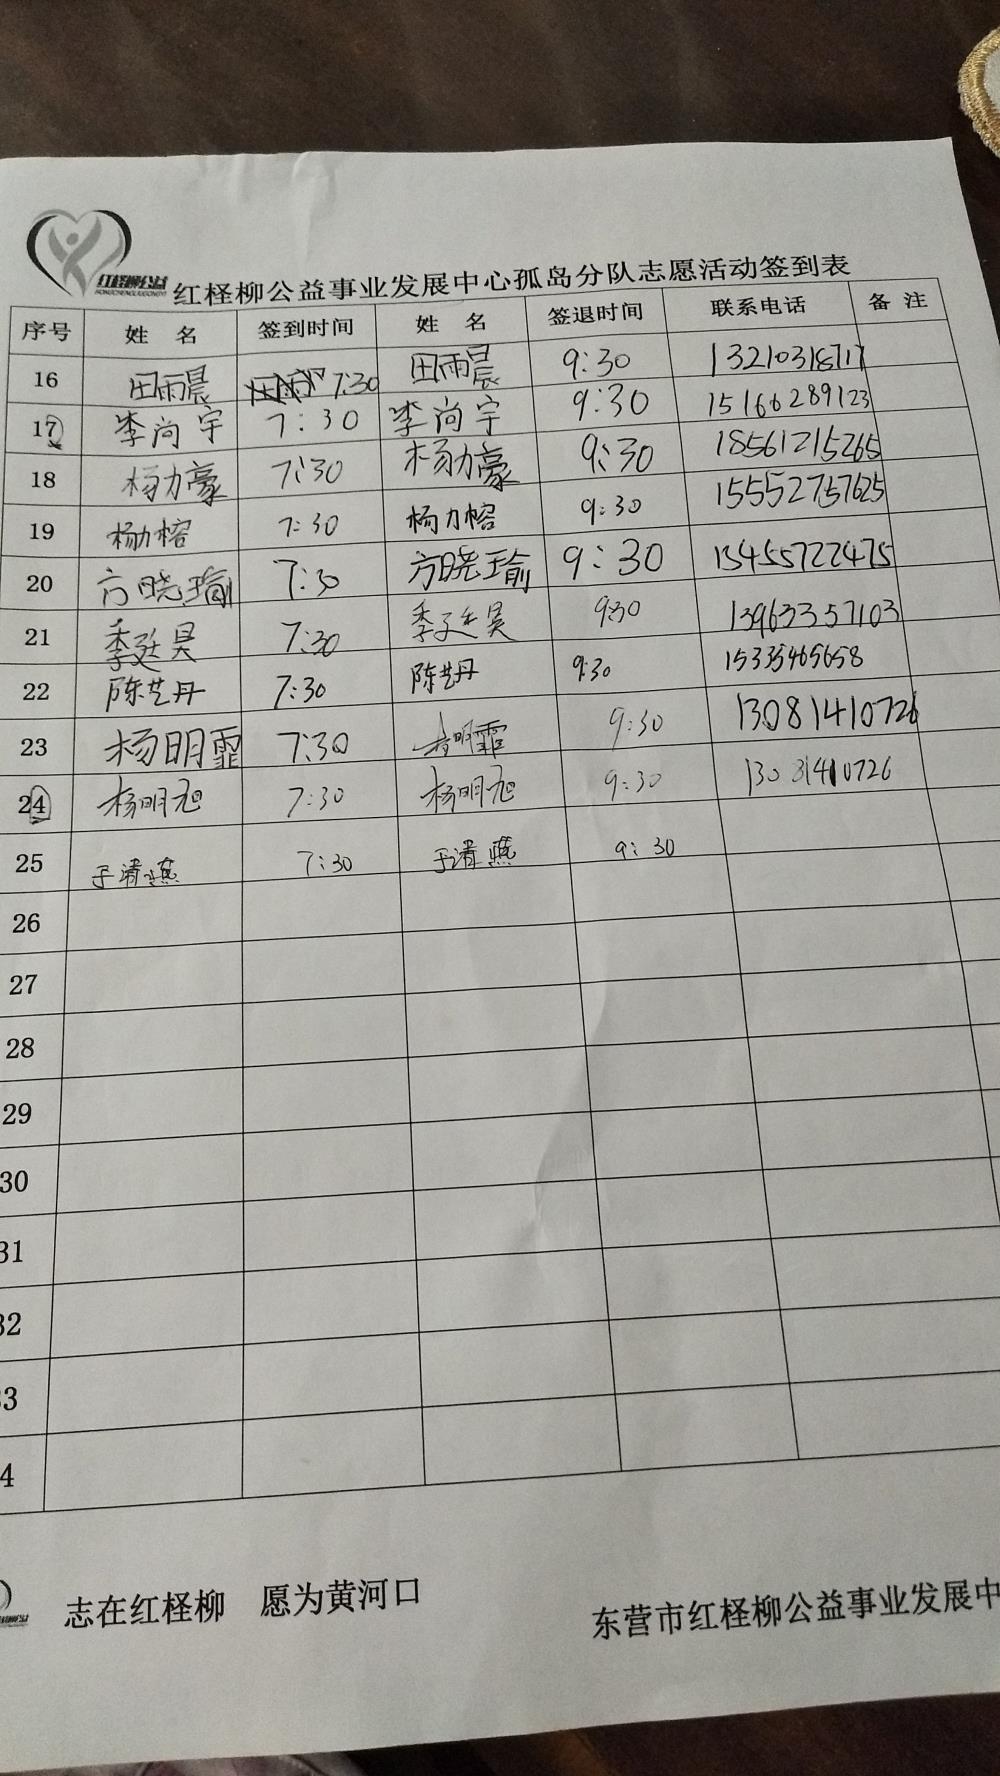 红柽柳公益
红柽柳公益事业发展中心孤岛分队志愿活动签到表
序号 姓 名 签到时间 姓 名 签退时间 联系电话 备 注
16 田雨晨 7:30 田雨晨 9:30 13210318717
17 李尚宇 7:30 李尚宇 9:30 15166289123
18 杨力豪 7:30 杨力豪 9:30 18561215265
19 杨力榕 7:30 杨力榕 9:30 15552757625
20 方晓瑜 7:30 方晓瑜 9:30 13455722475
21 季廷昊 7:30 季廷昊 9:30 13963357103
22 陈艺丹 7:30 陈艺丹 9:30 15335465658
23 杨明霏 7:30 杨明霏 9:30 13081410726
24 杨明旭 7:30 杨明旭 9:30 13081410726
25 于清燕 7:30 于清燕 9:30
26
27
28
29
30
31
32
33
4
志在红柽柳 愿为黄河口
东营市红柽柳公益事业发展中